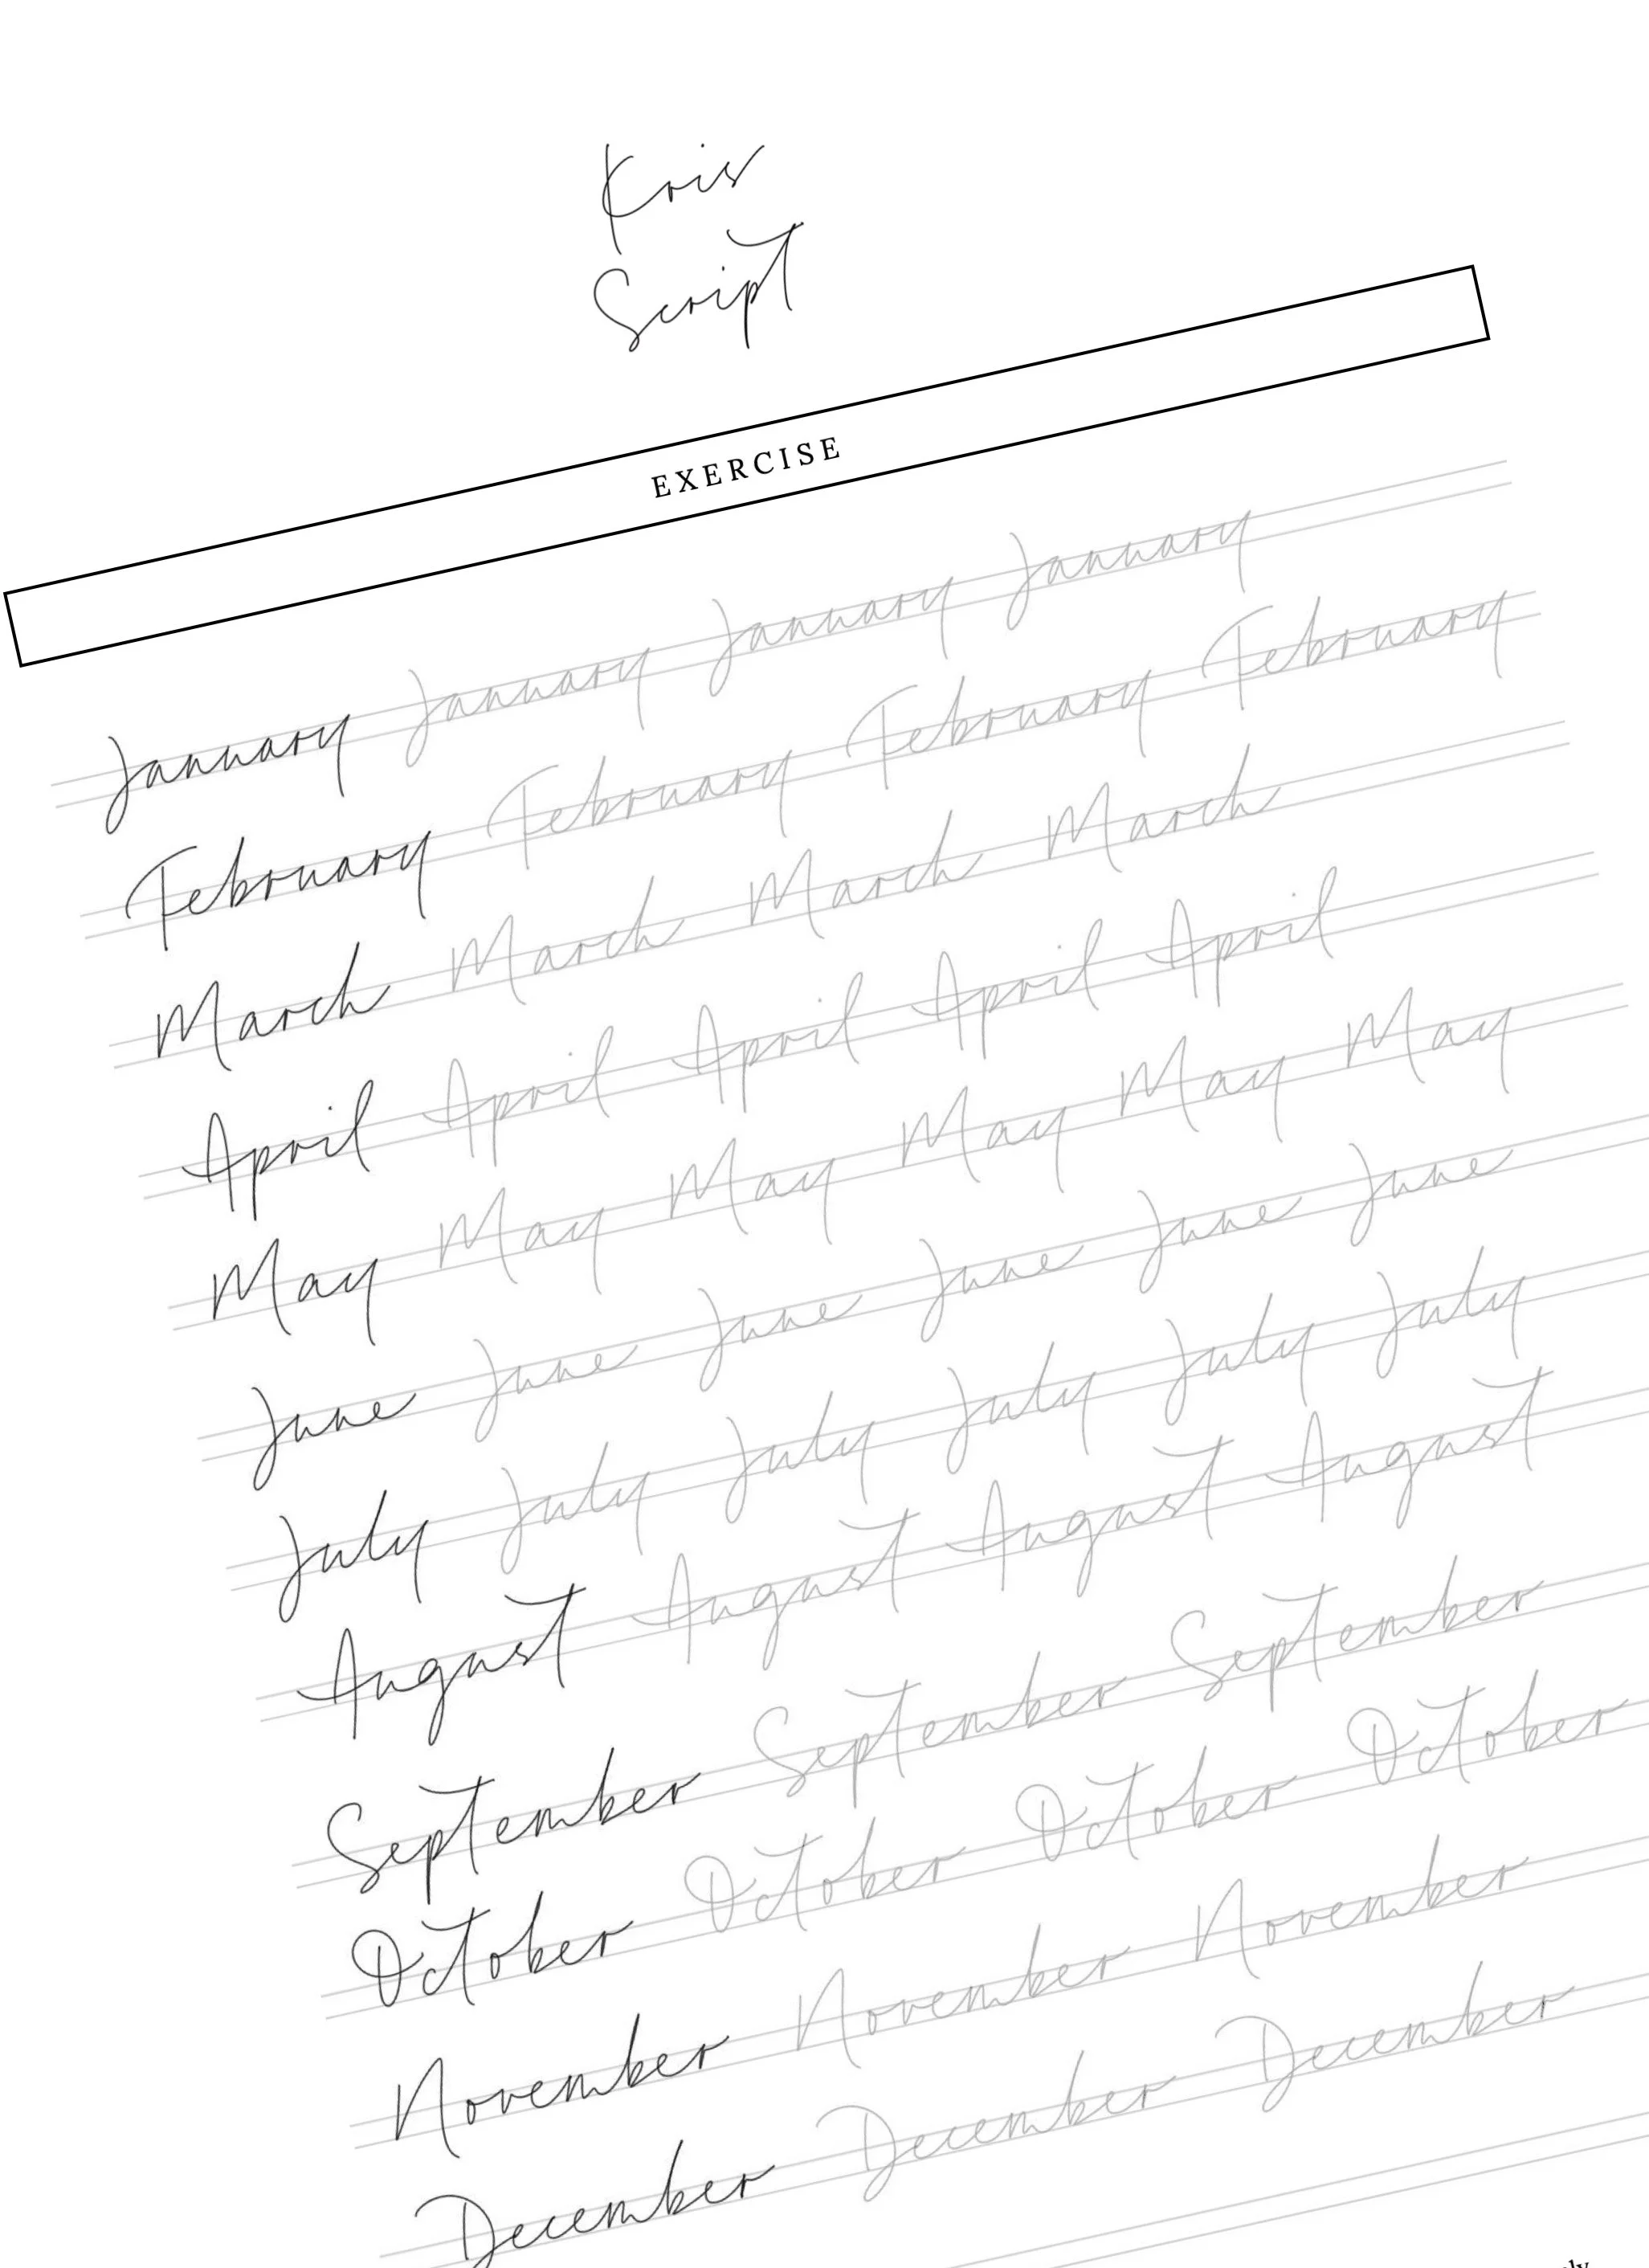 Kris
Script
EXERCISE
January January January January
February February February February
March March March March
April April April April April
May May May May May May
June June June June June June
July July July July July July
August August August August
September September September
October October October October
November November November
December December December